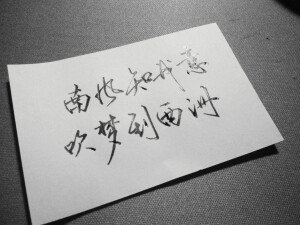 南风知我意
吹梦到西洲